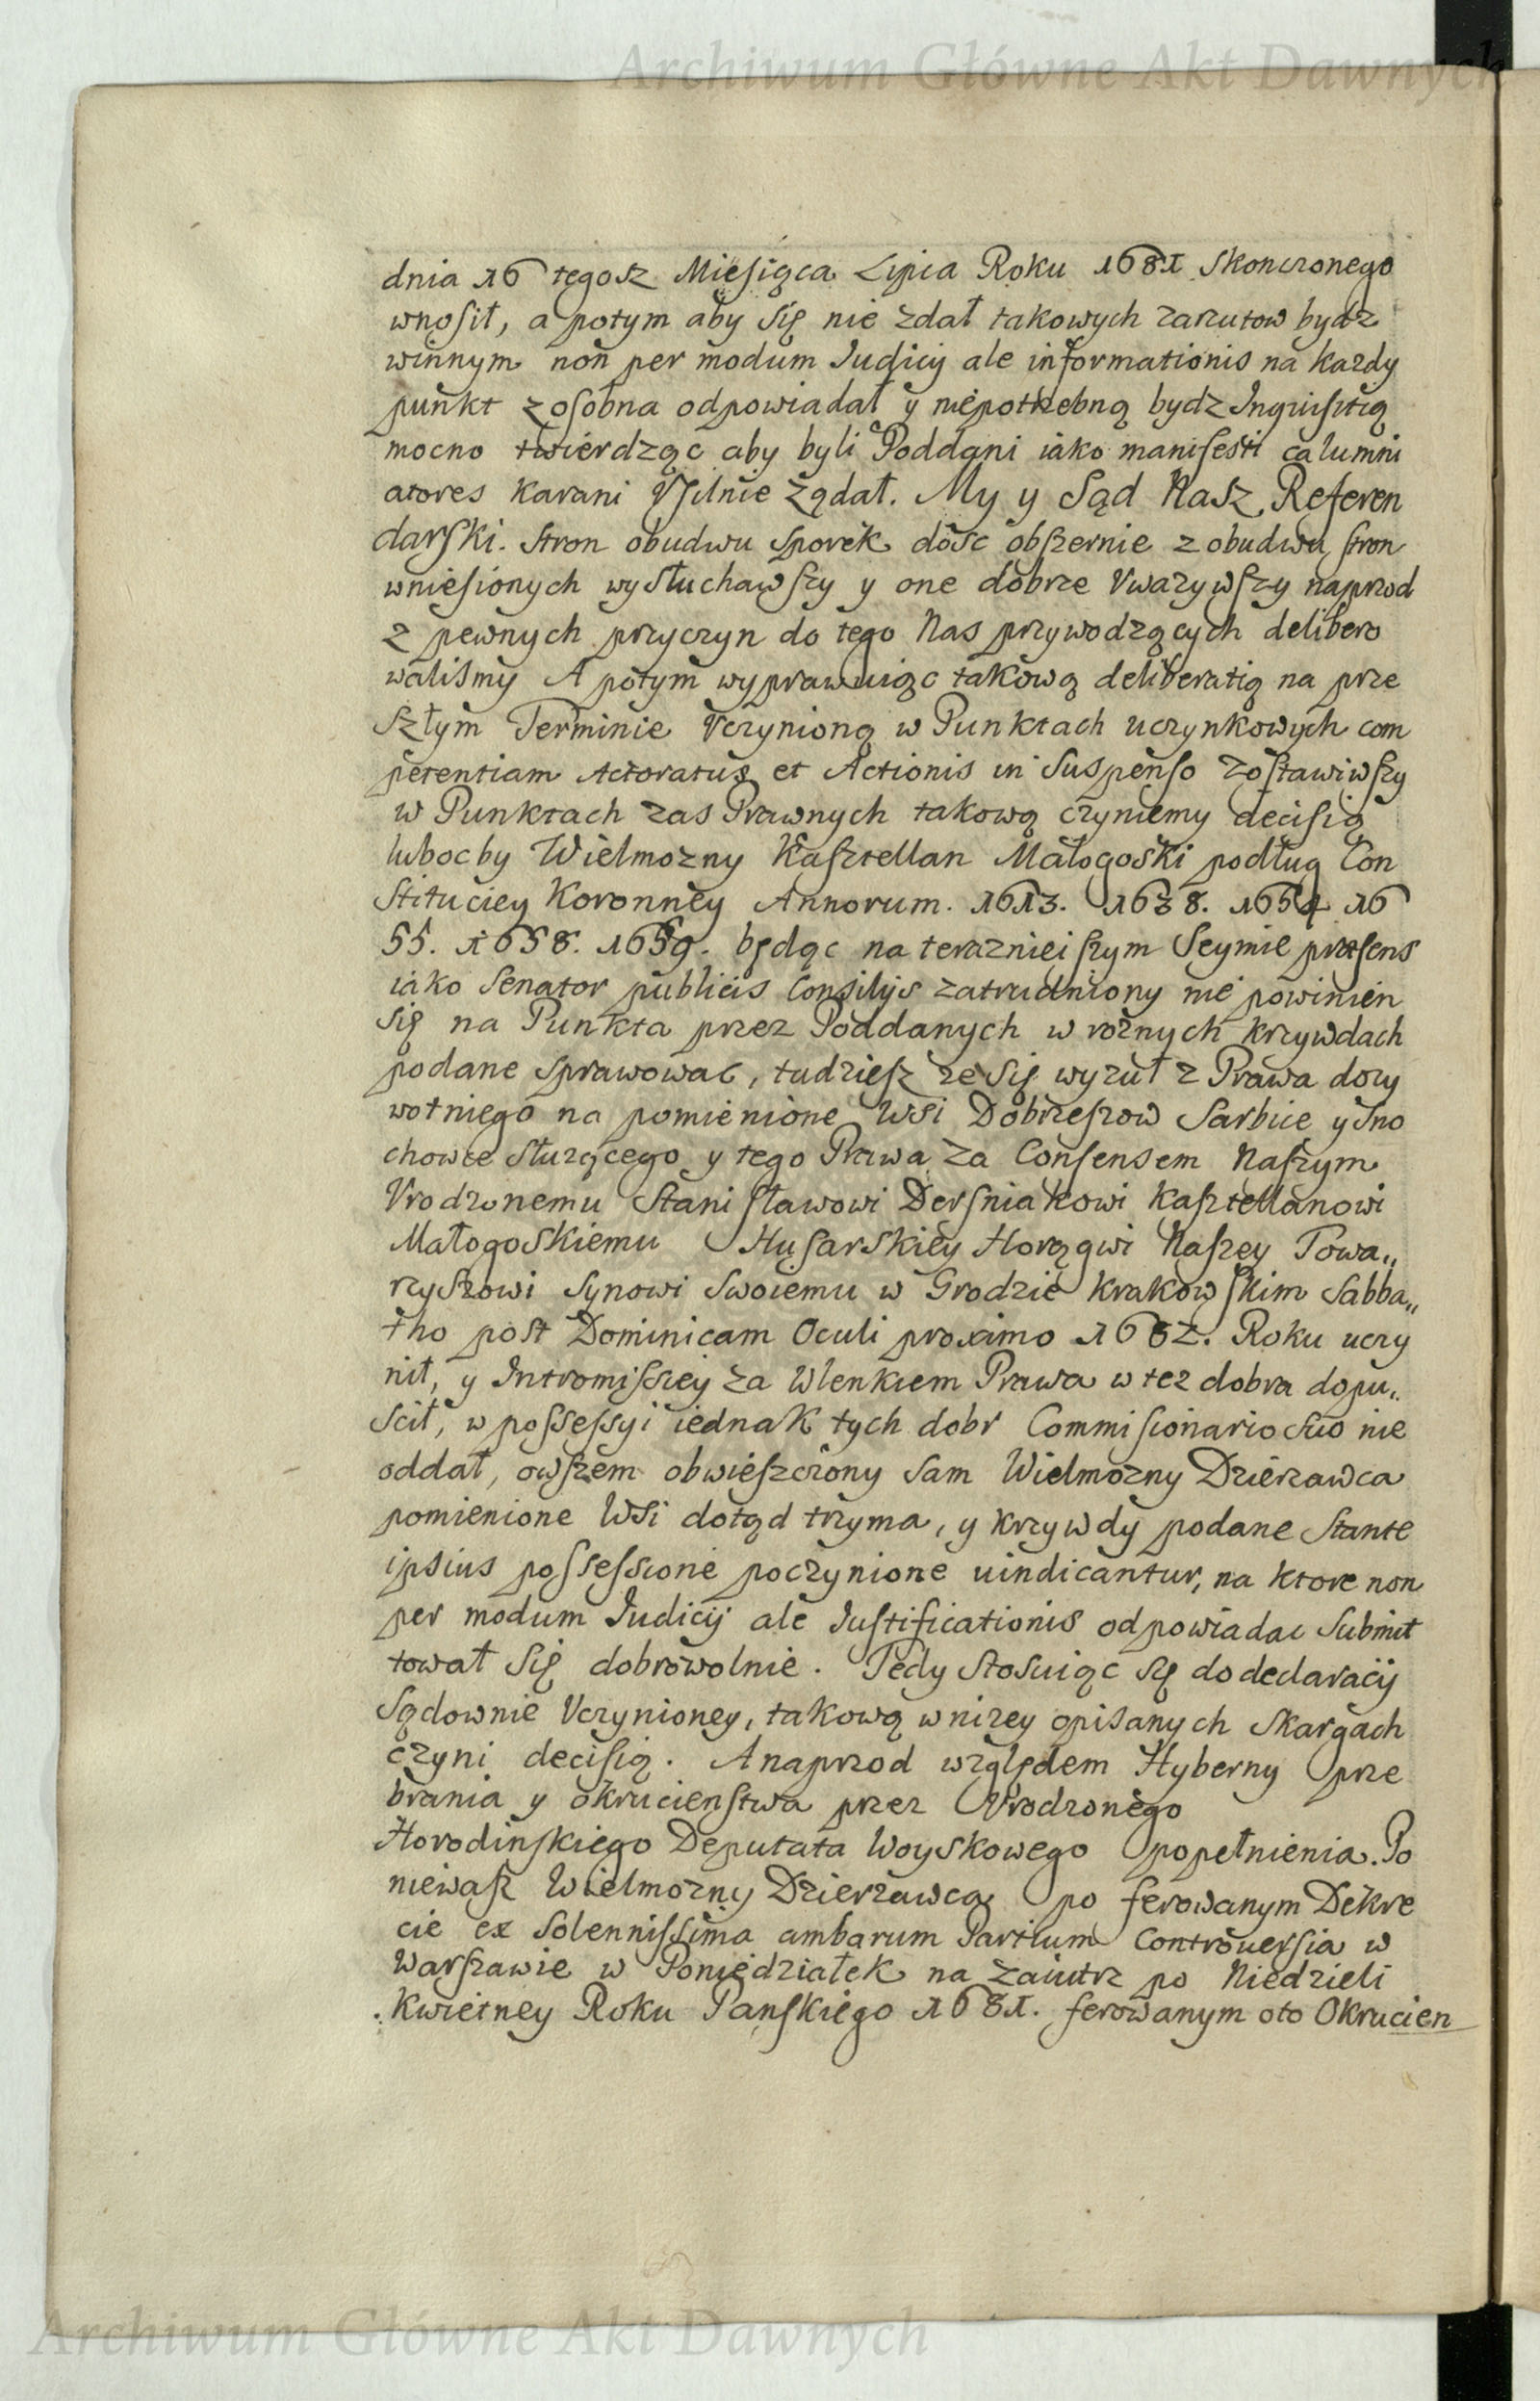 Archiwum Główne Akt Dawnych
dnia 16 tegosz Miesiąca Lipca Roku 1681 skonczonego
wnosił, a potym aby się nie zdał takowych zarzutow bydz
winnym non per modum Iudicij ale informationis na kazdy
punkt zosobna odpowiadał y niepotrzebną bydz Inquisitią
mocno twierdząc aby byli Poddani iako manifesti calumni
atores karani Vsilnie żądał. My y Sąd Nasz Referen
darski. Stron obudwu sporek dosc obszernie z obudwu stron
wniesionych wysłuchawszy y one dobrze Vwazywszy naprzod
z pewnych przyczyn do tego Nas przywodzących delibero
walismy A potym wyprawuiąc takową deliberatią na prze
szłym Terminie Vczynioną w Punktach uczynkowych com
petentiam Actoratus et Actionis in suspenso zostawiwszy
w Punktach zas Prawnych takową czyniemy decisią
lubocby Wielmozny Kasztellan Małogoski podług Con
stituciey Koronney Annorum. 1613. 1638. 1654 16
55. 1658. 1659. będąc na terazniejszym Seymie præsens
iako Senator publicis Consilijs zatrudniony nie powinien
się na Punkta przez Poddanych w roznych krzywdach
podane sprawowac, tudziesz ze się wyzuł z Prawa dozy
wotniego na pomienione Wsi Dobrzeszow Sarbice y Sno
chowce słuzącego y tego Prawa za Consensem Naszym
Vrodzonemu Stanisławowi Dersniakowi Kasztellanowi
Małogoskiemu Husarskiey Horągwi Naszey Towa„
rzyszowi Synowi swoiemu w Grodzie Krakowskim Sabba„
tho post Dominicam Oculi proximo 1682. Roku uczy
nił, y Intromissiey za Wlenkiem Prawa w tez dobra dopu„
scił, w possessyi iednak tych dobr Commissionario suo nie
oddał, owszem obwieszczony sam Wielmozny Dzierzawca
pomienione Wsi dotąd trzyma, y krzywdy podane stante
ipsius possessione poczynione uindicantur, na ktore non
per modum Iudicij ale Iustificationis odpowiadac submit
tował się dobrowolnie. Tedy stosuiąc się do declaracij
sądownie Vczynioney, takową w nizey opisanych skargach
czyni decisią. A naprzod względem Hyberny prze
brania y okrucienstwa przez Vrodzonego
Horodinskiego Deputata Woyskowego popełnienia. Po
niewasz Wielmozny Dzierzawca po ferowanym Dekre
cie ex solennissima ambarum Partium Controuersia w
Warszawie w Poniedziałek na zaiutrz po Niedzieli
Kwietney Roku Panskiego 1681. ferowanym oto Okrucien
Archiwum Główne Akt Dawnych